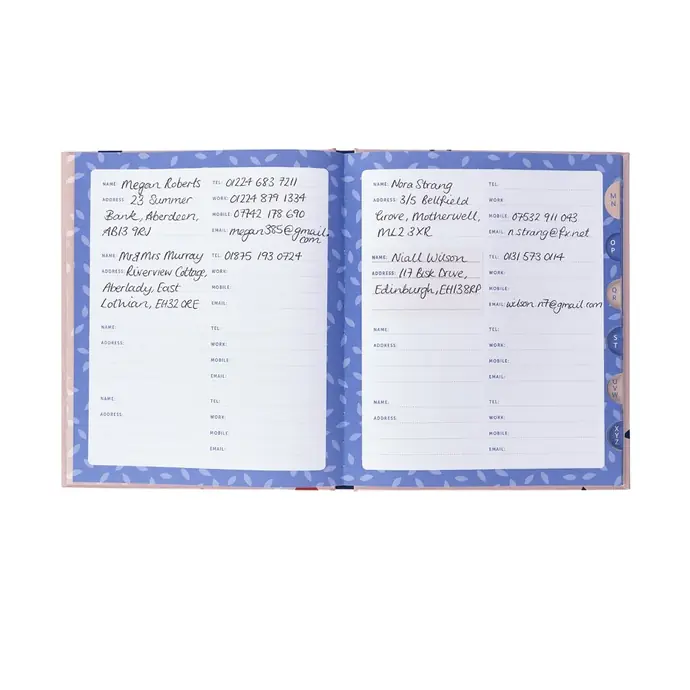 NAME: Megan Roberts TEL: 01224 683 7211
ADDRESS: 23 Summer WORK: 01224 879 1334
Bank, Aberdeen, MOBILE: 07742 178 690
AB13 9RJ EMAIL: megan385@gmail.
com
NAME: Mr&Mrs Murray TEL: 01875 193 0724
ADDRESS: Riverview Cottage, WORK:
Aberlady, East MOBILE:
Lothian, EH32 0RE EMAIL:
NAME: TEL:
ADDRESS: WORK:
MOBILE:
EMAIL:
NAME: TEL:
ADDRESS: WORK:
MOBILE:
EMAIL:
NAME: Nora Strang TEL:
ADDRESS: 3/5 Bellfield WORK:
Grove, Motherwell, MOBILE: 07532 911 043
ML2 3XR EMAIL: n.strang@fx.net
NAME: Niall Wilson TEL: 0131 573 0114
ADDRESS: 117 Bisk Drive, WORK:
Edinburgh, EH13 8RP MOBILE:
EMAIL: wilson.n7@gmail.com
NAME: TEL:
ADDRESS: WORK:
MOBILE:
EMAIL:
NAME: TEL:
ADDRESS: WORK:
MOBILE:
EMAIL:
MN
OP
QR
ST
UVW
XYZ